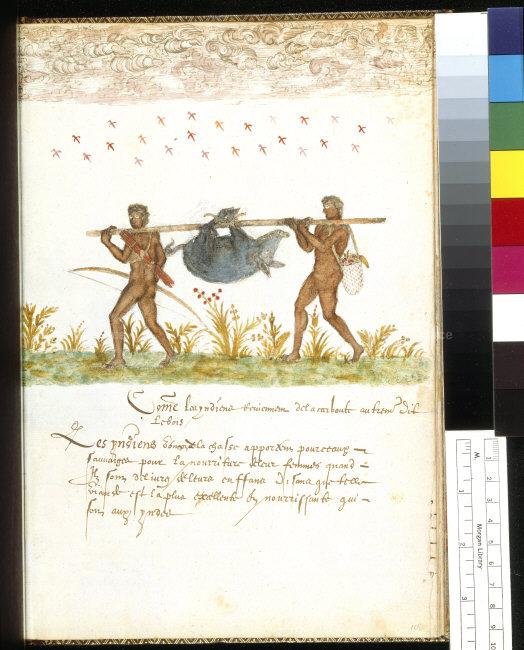 Come les yndiens reviennent de la carboute autrem^t dit
le bois
Les yndiens venant de la chasse apportent pourceaux
sauvaiges pour la nourriture de leur femmes quand
Ilz sont delivrez de leurs enffans Disant que telle
viande est la plus excellente & nourrissante qui
soit aux yndes
Morgan Library